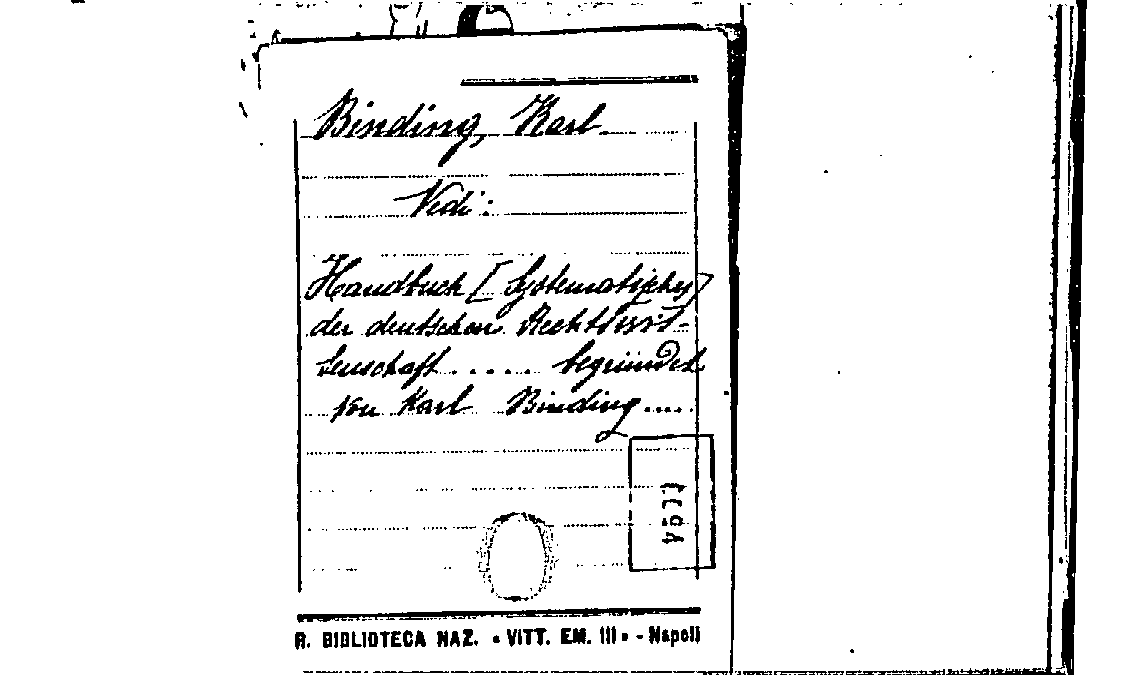 Binding, Karl
Vedi:
Handbuch [Systematisches]
der deutschen Rechtswis-
senschaft ..... begründet
von Karl Binding ....
R. BIBLIOTECA NAZ. « VITT. EM. III » - Napoli